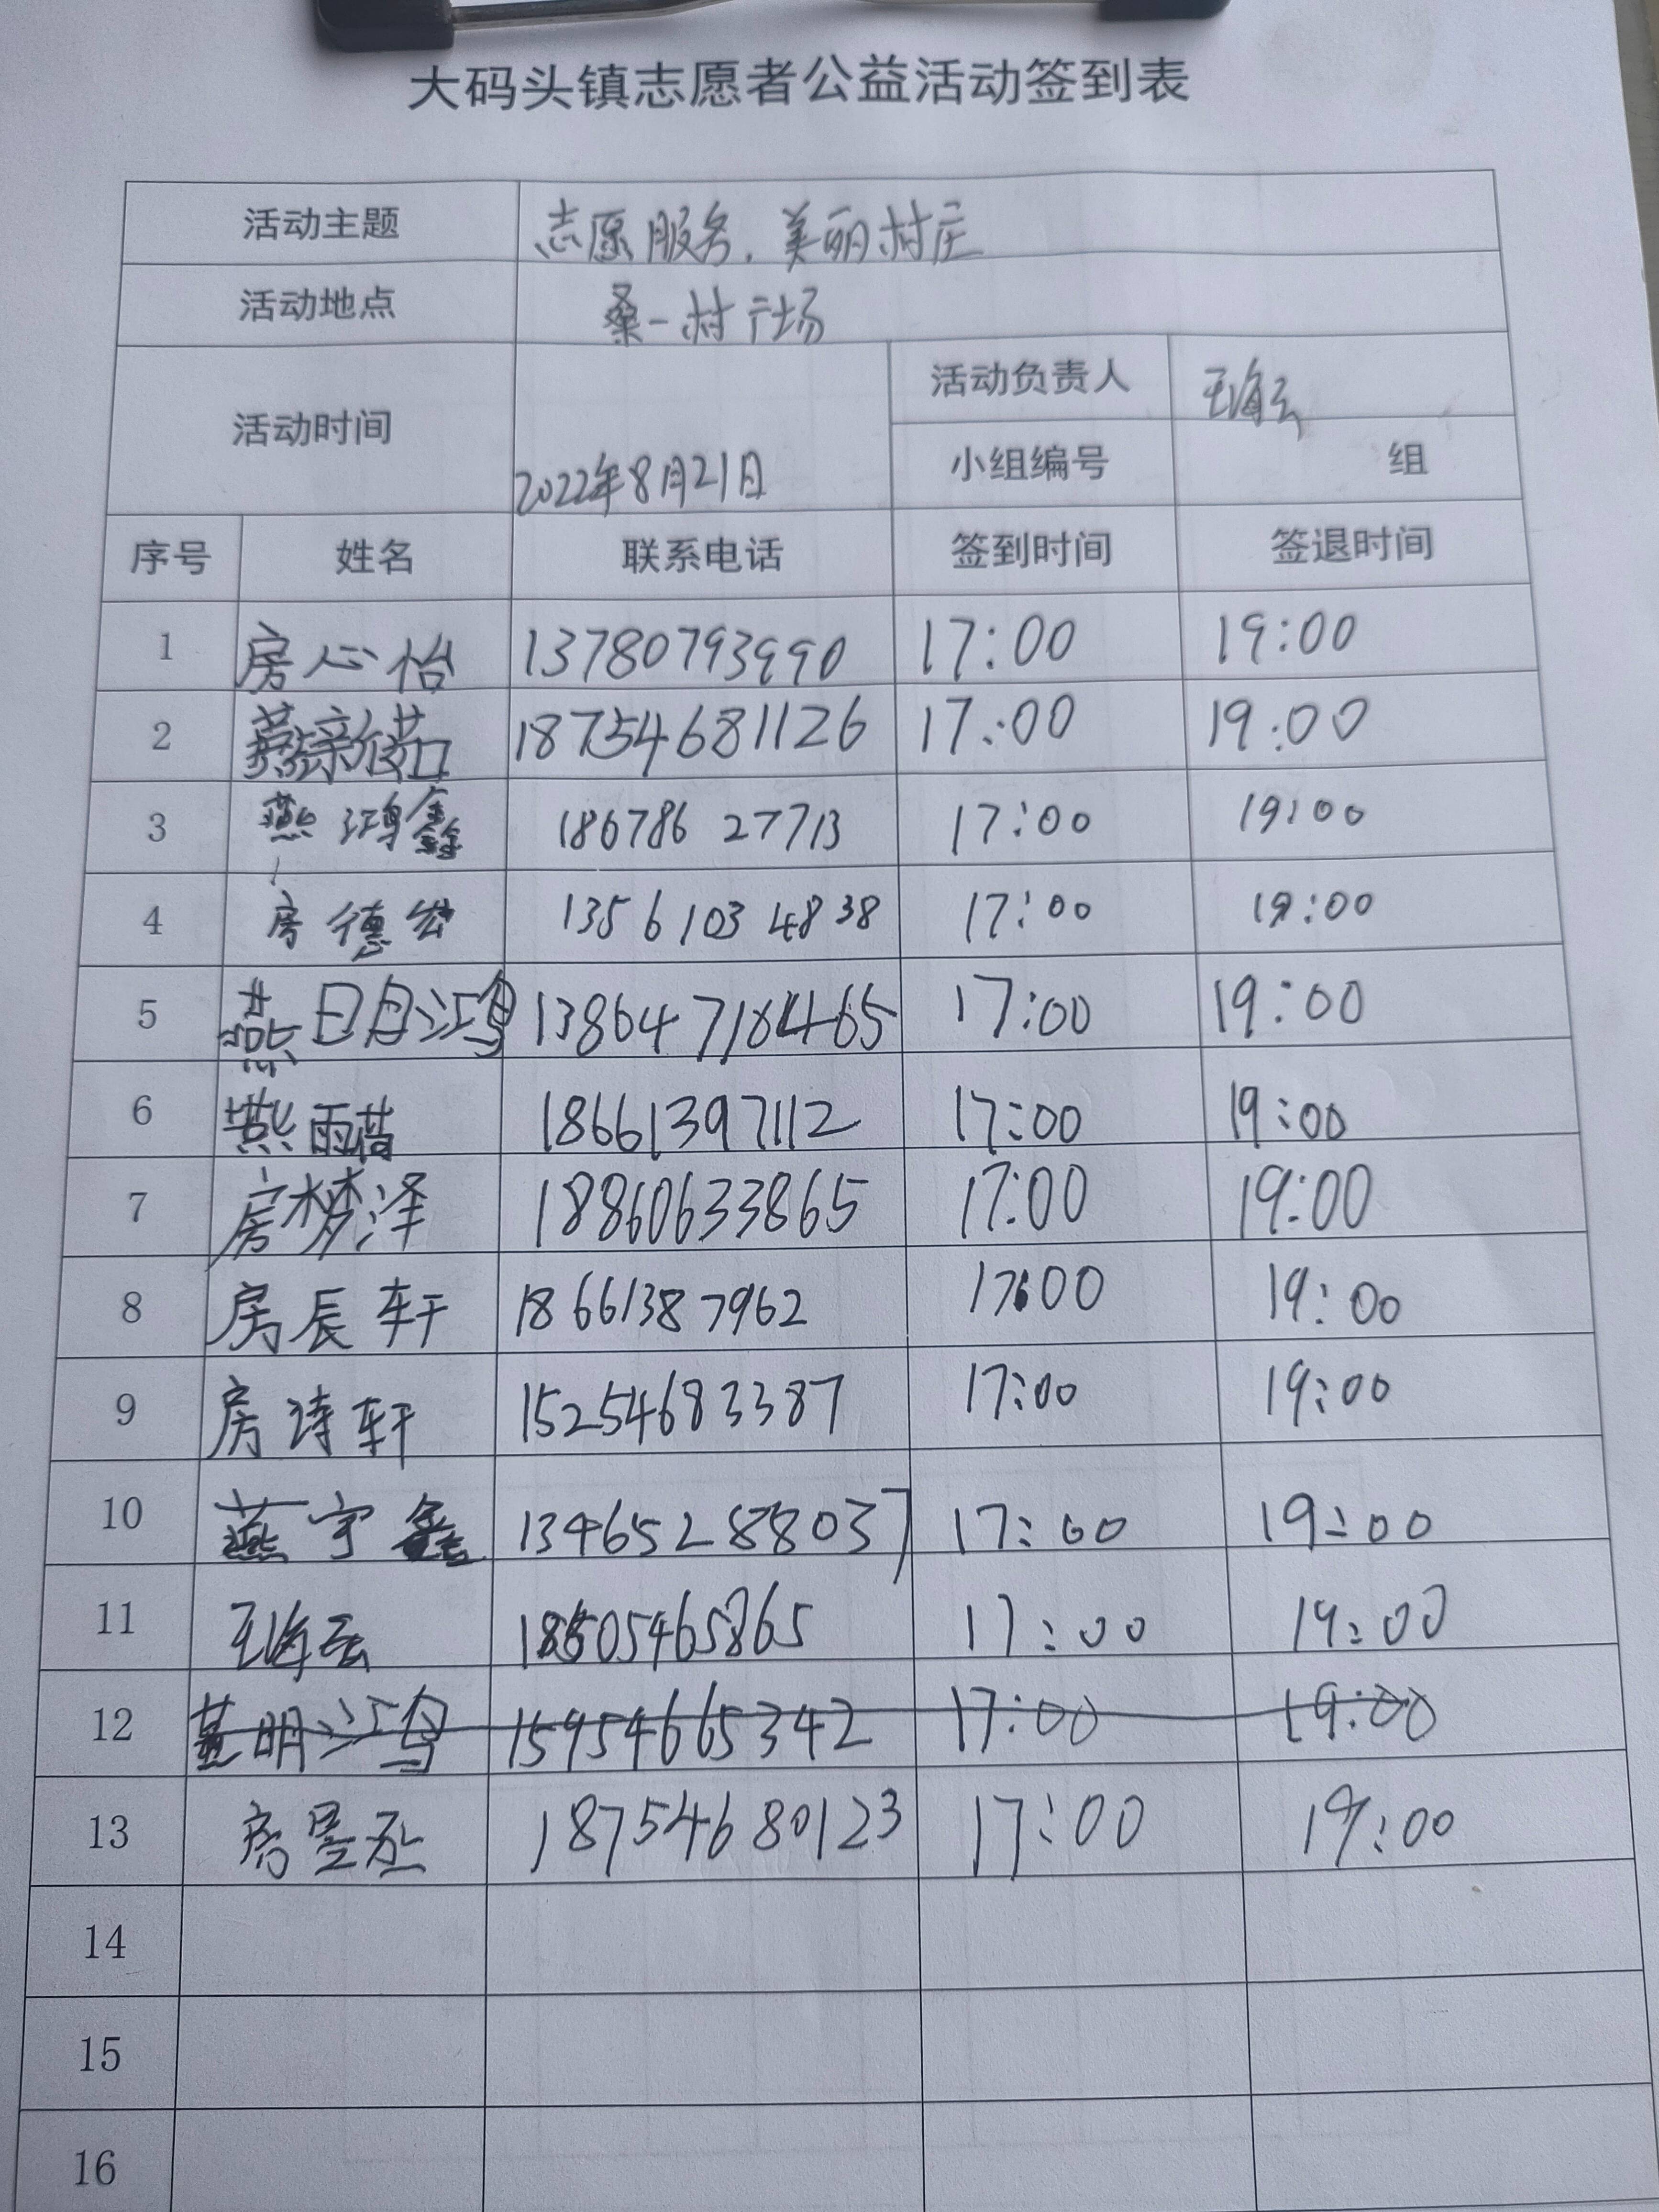 大码头镇志愿者公益活动签到表
活动主题 志愿服务.美丽村庄
活动地点 桑一村广场
活动时间 2022年8月21日 活动负责人 王海云
小组编号 组
序号 姓名 联系电话 签到时间 签退时间
1 房心怡 13780793990 17:00 19:00
2 18754681126 17:00 19:00
3 燕鸿鑫 18678627713 17:00 19:00
4 房德 13561034838 17:00 19:00
5 燕明鸿 17:00 19:00
6 燕雨 18661397112 17:00 19:00
7 房梦泽 18860633865 17:00 19:00
8 房辰轩 18661387962 17:00 19:00
9 房诗轩 15254683387 17:00 19:00
10 燕宇鑫 13465288037 17:00 19:00
11 王海云 17:00 19:00
12 明鸿 15954665342 17:00 19:00
13 房昱丞 18754680123 17:00 19:00
14
15
16